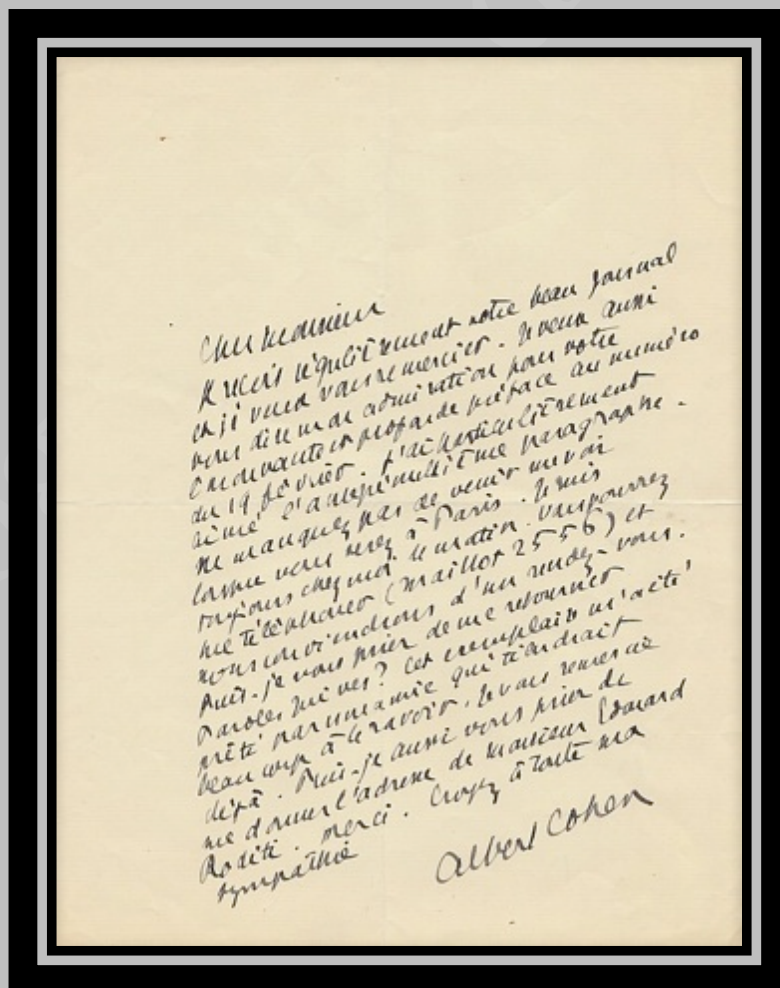 Cher Monsieur
Je reçois régulièrement votre beau journal
et je veux vous remercier. Je veux aussi
vous dire mon admiration pour votre
émouvante et profonde préface au numéro
du 19 février. J'ai particulièrement
aimé l'antépénultième paragraphe.
Ne manquez pas de venir me voir
lorsque vous serez à Paris. Je suis
toujours chez moi le matin. Vous pourrez
me téléphoner (Maillot 2556) et
nous conviendrons d'un rendez-vous.
Puis-je vous prier de me retourner
Paroles juives? Cet exemplaire m'a été
prêté par une amie qui tiendrait
beaucoup à le ravoir. Je vous remercie
déjà. Puis-je aussi vous prier de
me donner l'adresse de Monsieur Edouard
Roditi. Merci. Croyez à toute ma
sympathie
Albert Cohen